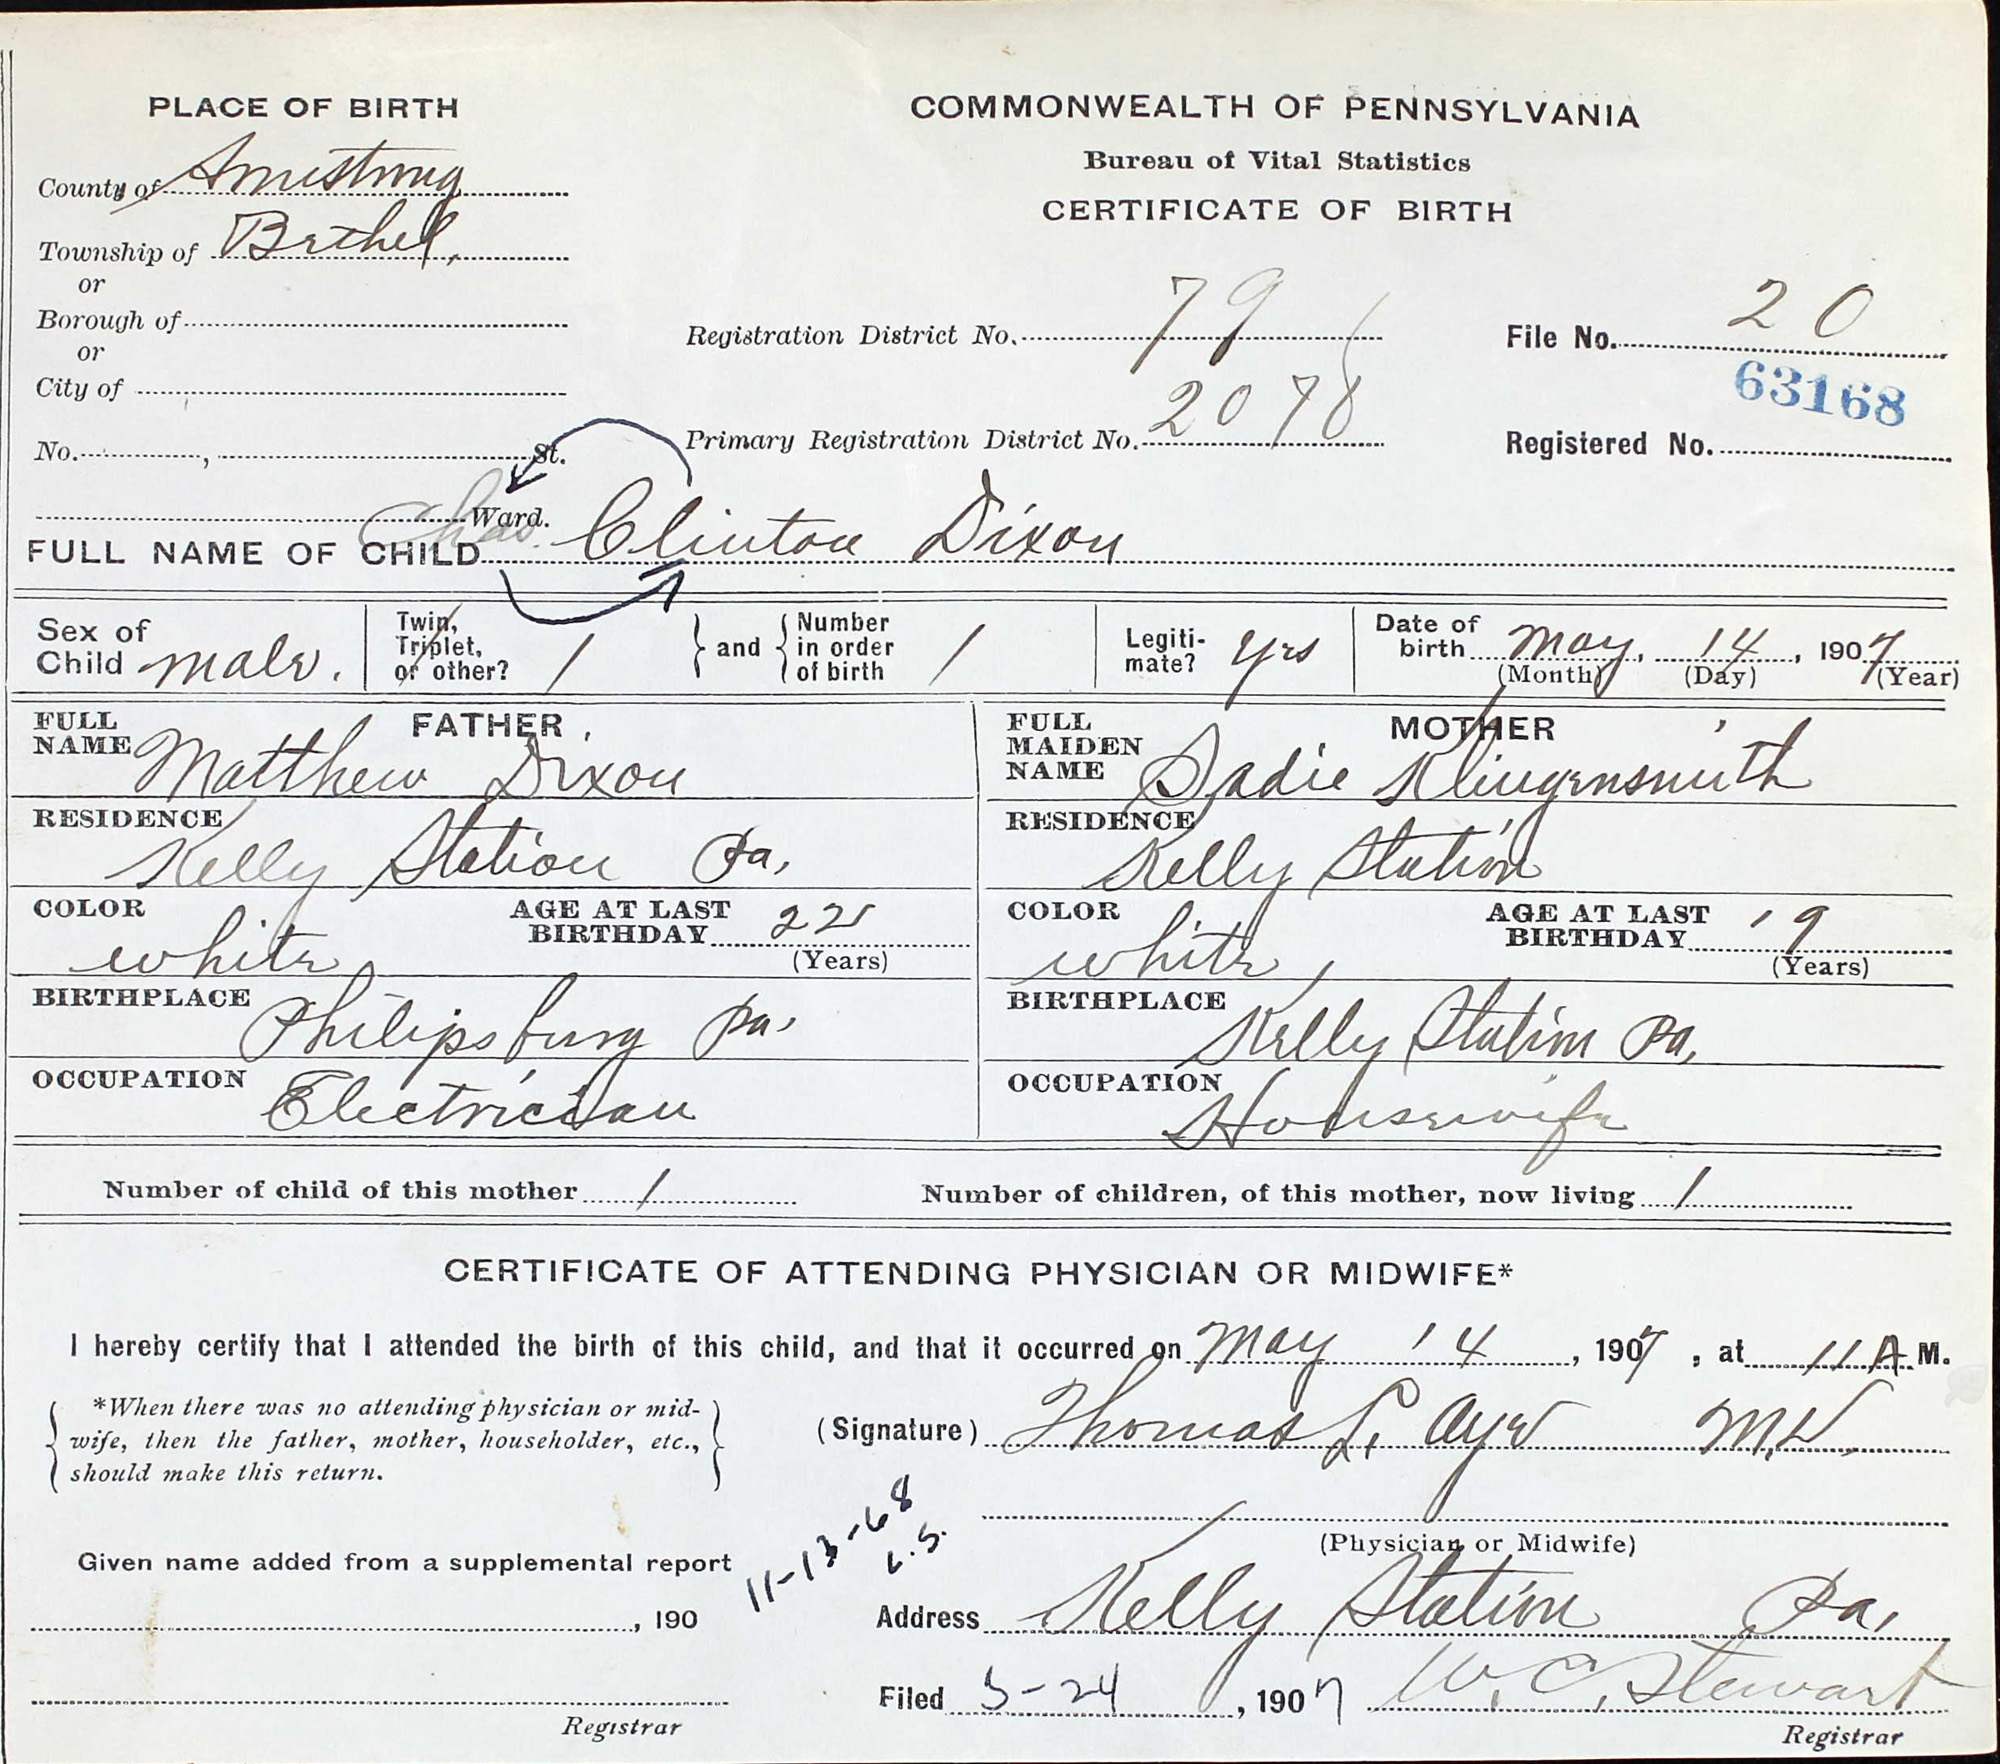 PLACE OF BIRTH
County of Armstrong
Township of Bethel,
or
Borough of
or
City of
No. , St.
Ward.
COMMONWEALTH OF PENNSYLVANIA
Bureau of Vital Statistics
CERTIFICATE OF BIRTH
Registration District No. 79
File No. 20
63168
Primary Registration District No. 2078
Registered No.
FULL NAME OF CHILD Chas. Clinton Dixon
Sex of Child male. Twin, Triplet, or other? 1 and Number in order of birth 1 Legitimate? yes Date of birth May, 14, 1907
(Month) (Day) (Year)
FATHER
FULL NAME Matthew Dixon
RESIDENCE Kelly Station Pa.
COLOR white AGE AT LAST BIRTHDAY 22
(Years)
BIRTHPLACE Philipsburg Pa.
OCCUPATION Electrician
MOTHER
FULL MAIDEN NAME Sadie Klingensmith
RESIDENCE Kelly Station
COLOR white, AGE AT LAST BIRTHDAY 19
(Years)
BIRTHPLACE Kelly Station Pa.
OCCUPATION Housewife
Number of child of this mother 1 Number of children, of this mother, now living 1
CERTIFICATE OF ATTENDING PHYSICIAN OR MIDWIFE*
I hereby certify that I attended the birth of this child, and that it occurred on May 14, 1907, at 11 A M.
*When there was no attending physician or mid-
wife, then the father, mother, householder, etc.,
should make this return.
(Signature) Thomas L. Ayer M.D.
(Physician or Midwife)
11-13-68
L.S.
Given name added from a supplemental report
, 190
Registrar
Address Kelly Station Pa.
Filed 5-24, 1907 W. C. Stewart
Registrar